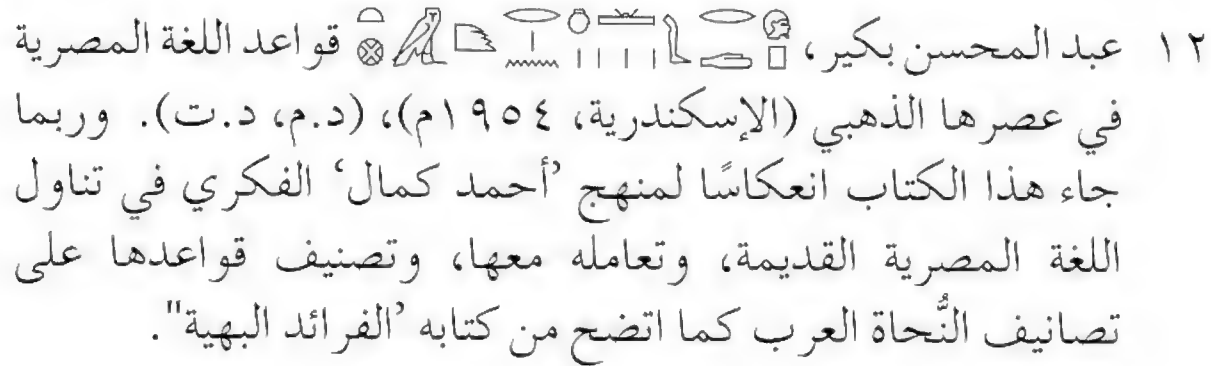 ١٢ عبد المحسن بكير، 𓁶𓊪𓂋𓂧𓂾𓏌𓏥𓂋𓏤𓈖𓆎𓅓𓏏𓊖 قواعد اللغة المصرية
في عصرها الذهبي (الإسكندرية، ١٩٥٤م)، (د.م، د.ت). وربما
جاء هذا الكتاب انعكاسًا لمنهج ’أحمد كمال‘ الفكري في تناول
اللغة المصرية القديمة، وتعامله معها، وتصنيف قواعدها على
تصانيف النُّحاة العرب كما اتضح من كتابه ’الفرائد البهية".